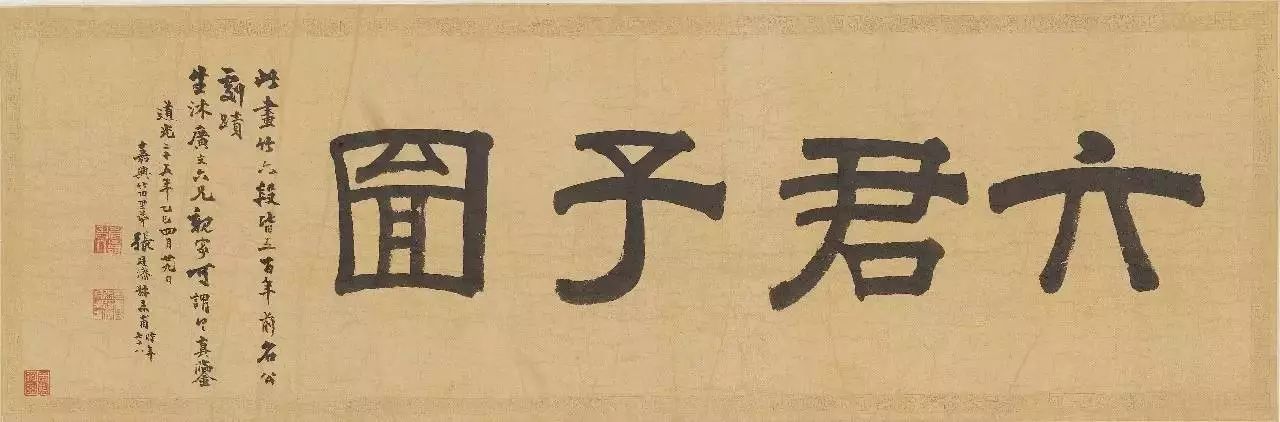 六君子圖
此畫竹六段皆五百年前名公
劇蹟
生沐廣文六兄親家可謂之真鑒
道光二十五年乙巳四月廿九日
嘉興竹田里弟張廷濟
時年七十八